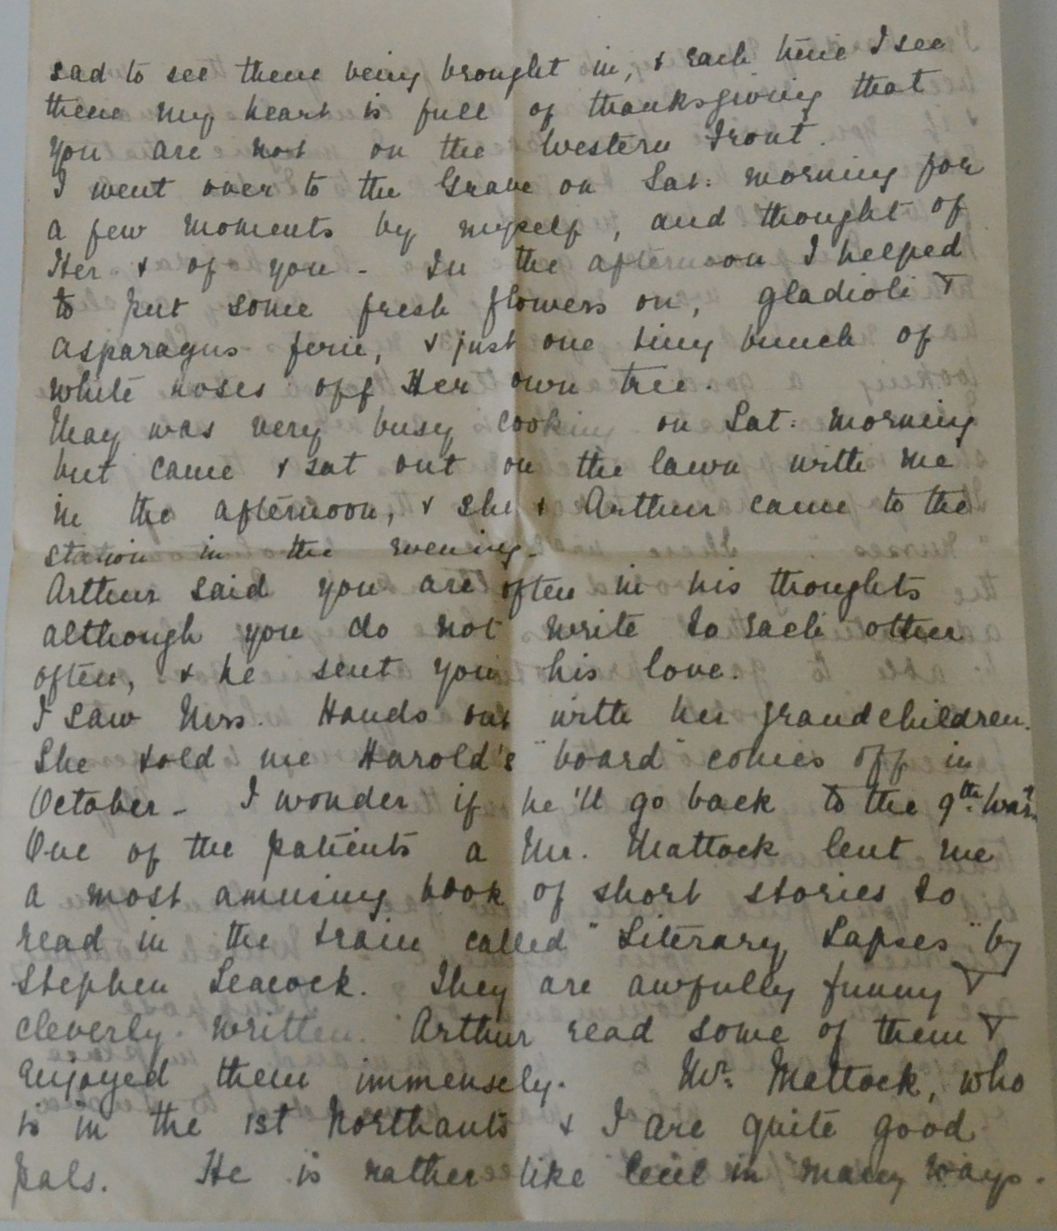 sad to see them being brought in, & each time I see
them my heart is full of thanksgiving that
you are not on the Western Front.
I went over to the Grave on Sat: morning for
a few moments by myself, and thought of
Her & of you - In the afternoon I helped
to put some fresh flowers on, gladioli &
asparagus fern, & just one tiny bunch of
white roses off Her own tree.
May was very busy cook on Sat: morning
but came & sat out on the lawn with me
in the afternoon, & she & Arthur came to the
station in the evening.
Arthur said you are often in his thoughts
although you do not write to each other
often, & he sent you his love.
I saw Mrs. Hands out with her grandchildren.
She told me Harold's "board" comes off in
October - I wonder if he'll go back to the 9th
One of the patients a Mr. Mattock lent me
a most amusing book of short stories to
read in the train called "Literary Lapses" by
Stephen Leacock. They are awfully funny &
cleverly written. Arthur read some of them &
enjoyed them immensely. Mr. Mattock, who
is in the 1st Northants & I are quite good
pals. He is rather like Cecil in many ways.